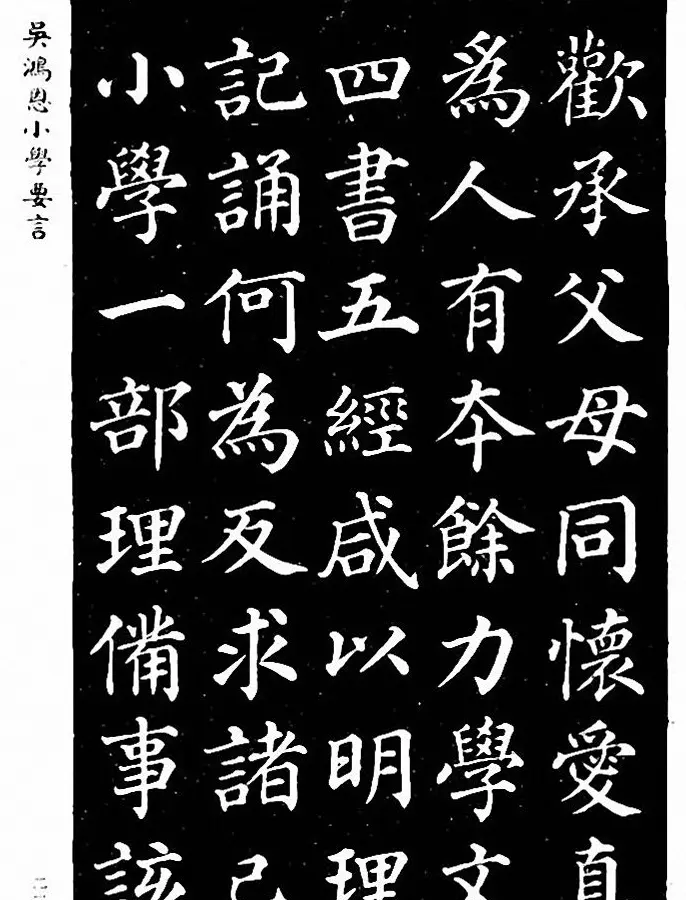 歡承父母同懷愛真
爲人有本餘力學文
四書五經咸以明理
記誦何為反求諸己
小學一部理備事該
吳鴻恩小學要言